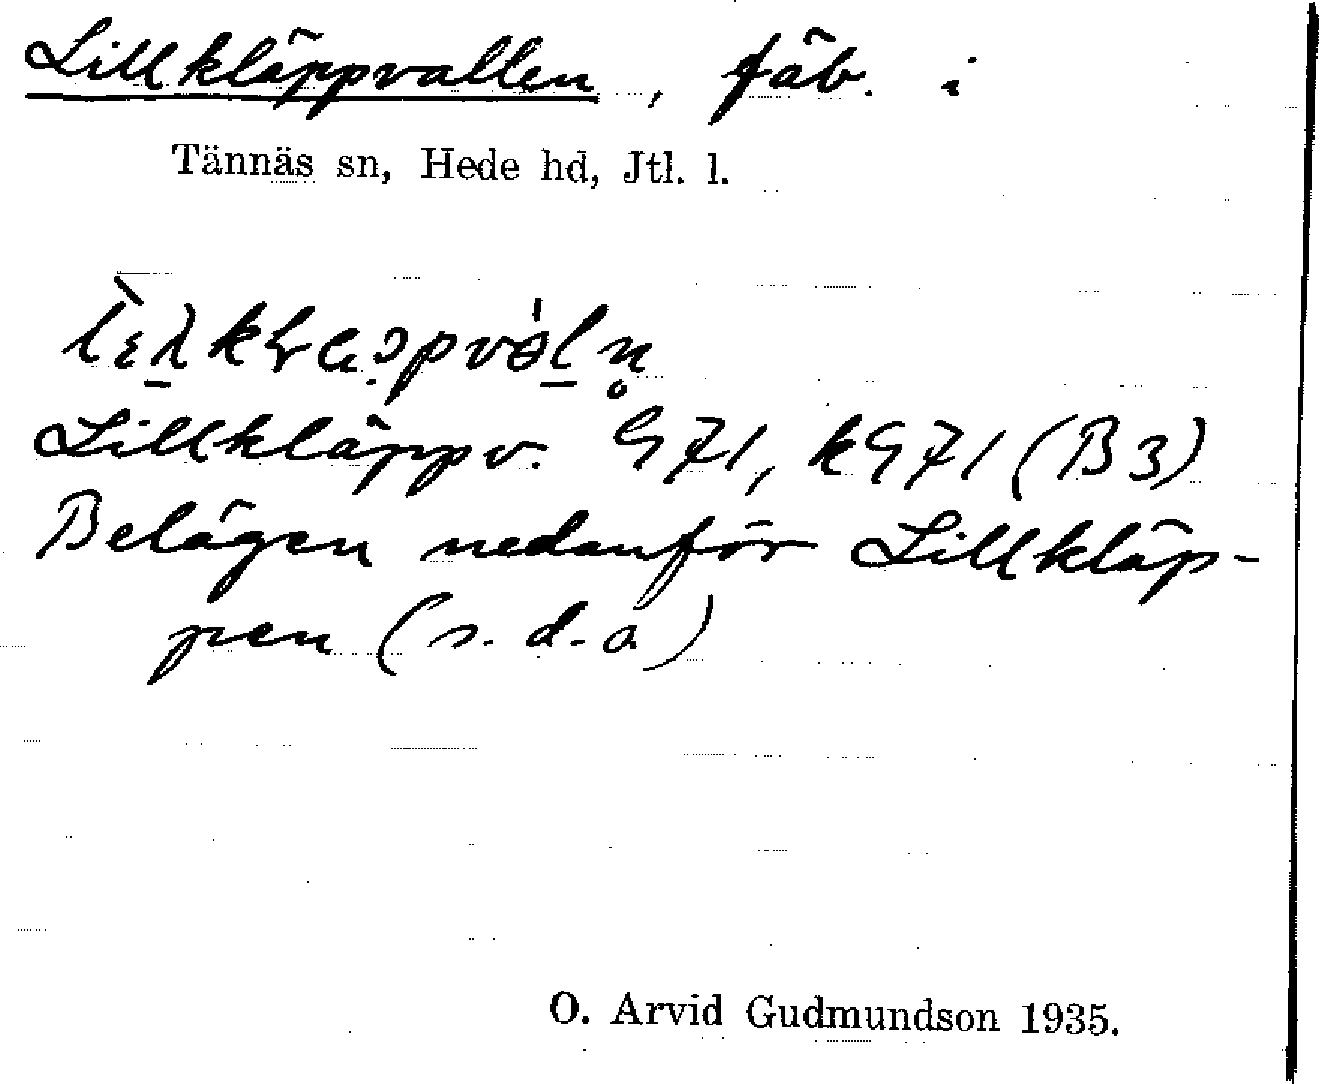 Lillkläppvallen, fäb. i
Tännäs sn, Hede hd, Jtl. l.
Lillkläppv. G 71, kG 71 (B 3)
Belägen nedanför Lillkläp-
pen (s. d. o)
O. Arvid Gudmundson 1935.